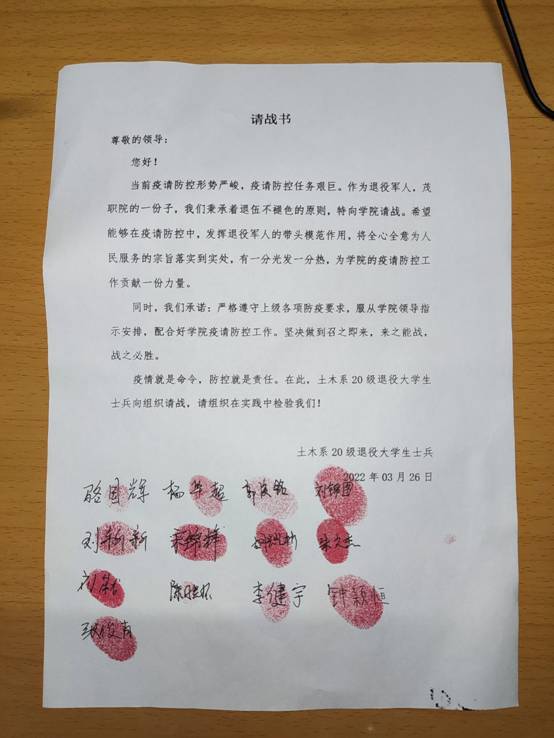 请战书
尊敬的领导：
您好！
当前疫请防控形势严峻，疫请防控任务艰巨。作为退役军人，茂
职院的一份子，我们秉承着退伍不褪色的原则，特向学院请战。希望
能够在疫请防控中，发挥退役军人的带头模范作用，将全心全意为人
民服务的宗旨落实到实处，有一分光发一分热，为学院的疫请防控工
作贡献一份力量。
同时，我们承诺：严格遵守上级各项防疫要求，服从学院领导指
示安排，配合好学院疫请防控工作。坚决做到召之即来，来之能战，
战之必胜。
疫情就是命令，防控就是责任。在此，土木系20级退役大学生
士兵向组织请战，请组织在实践中检验我们！
土木系20级退役大学生士兵
2022年03月26日
骆国辉 杨华超
李健宇 钟颖恒